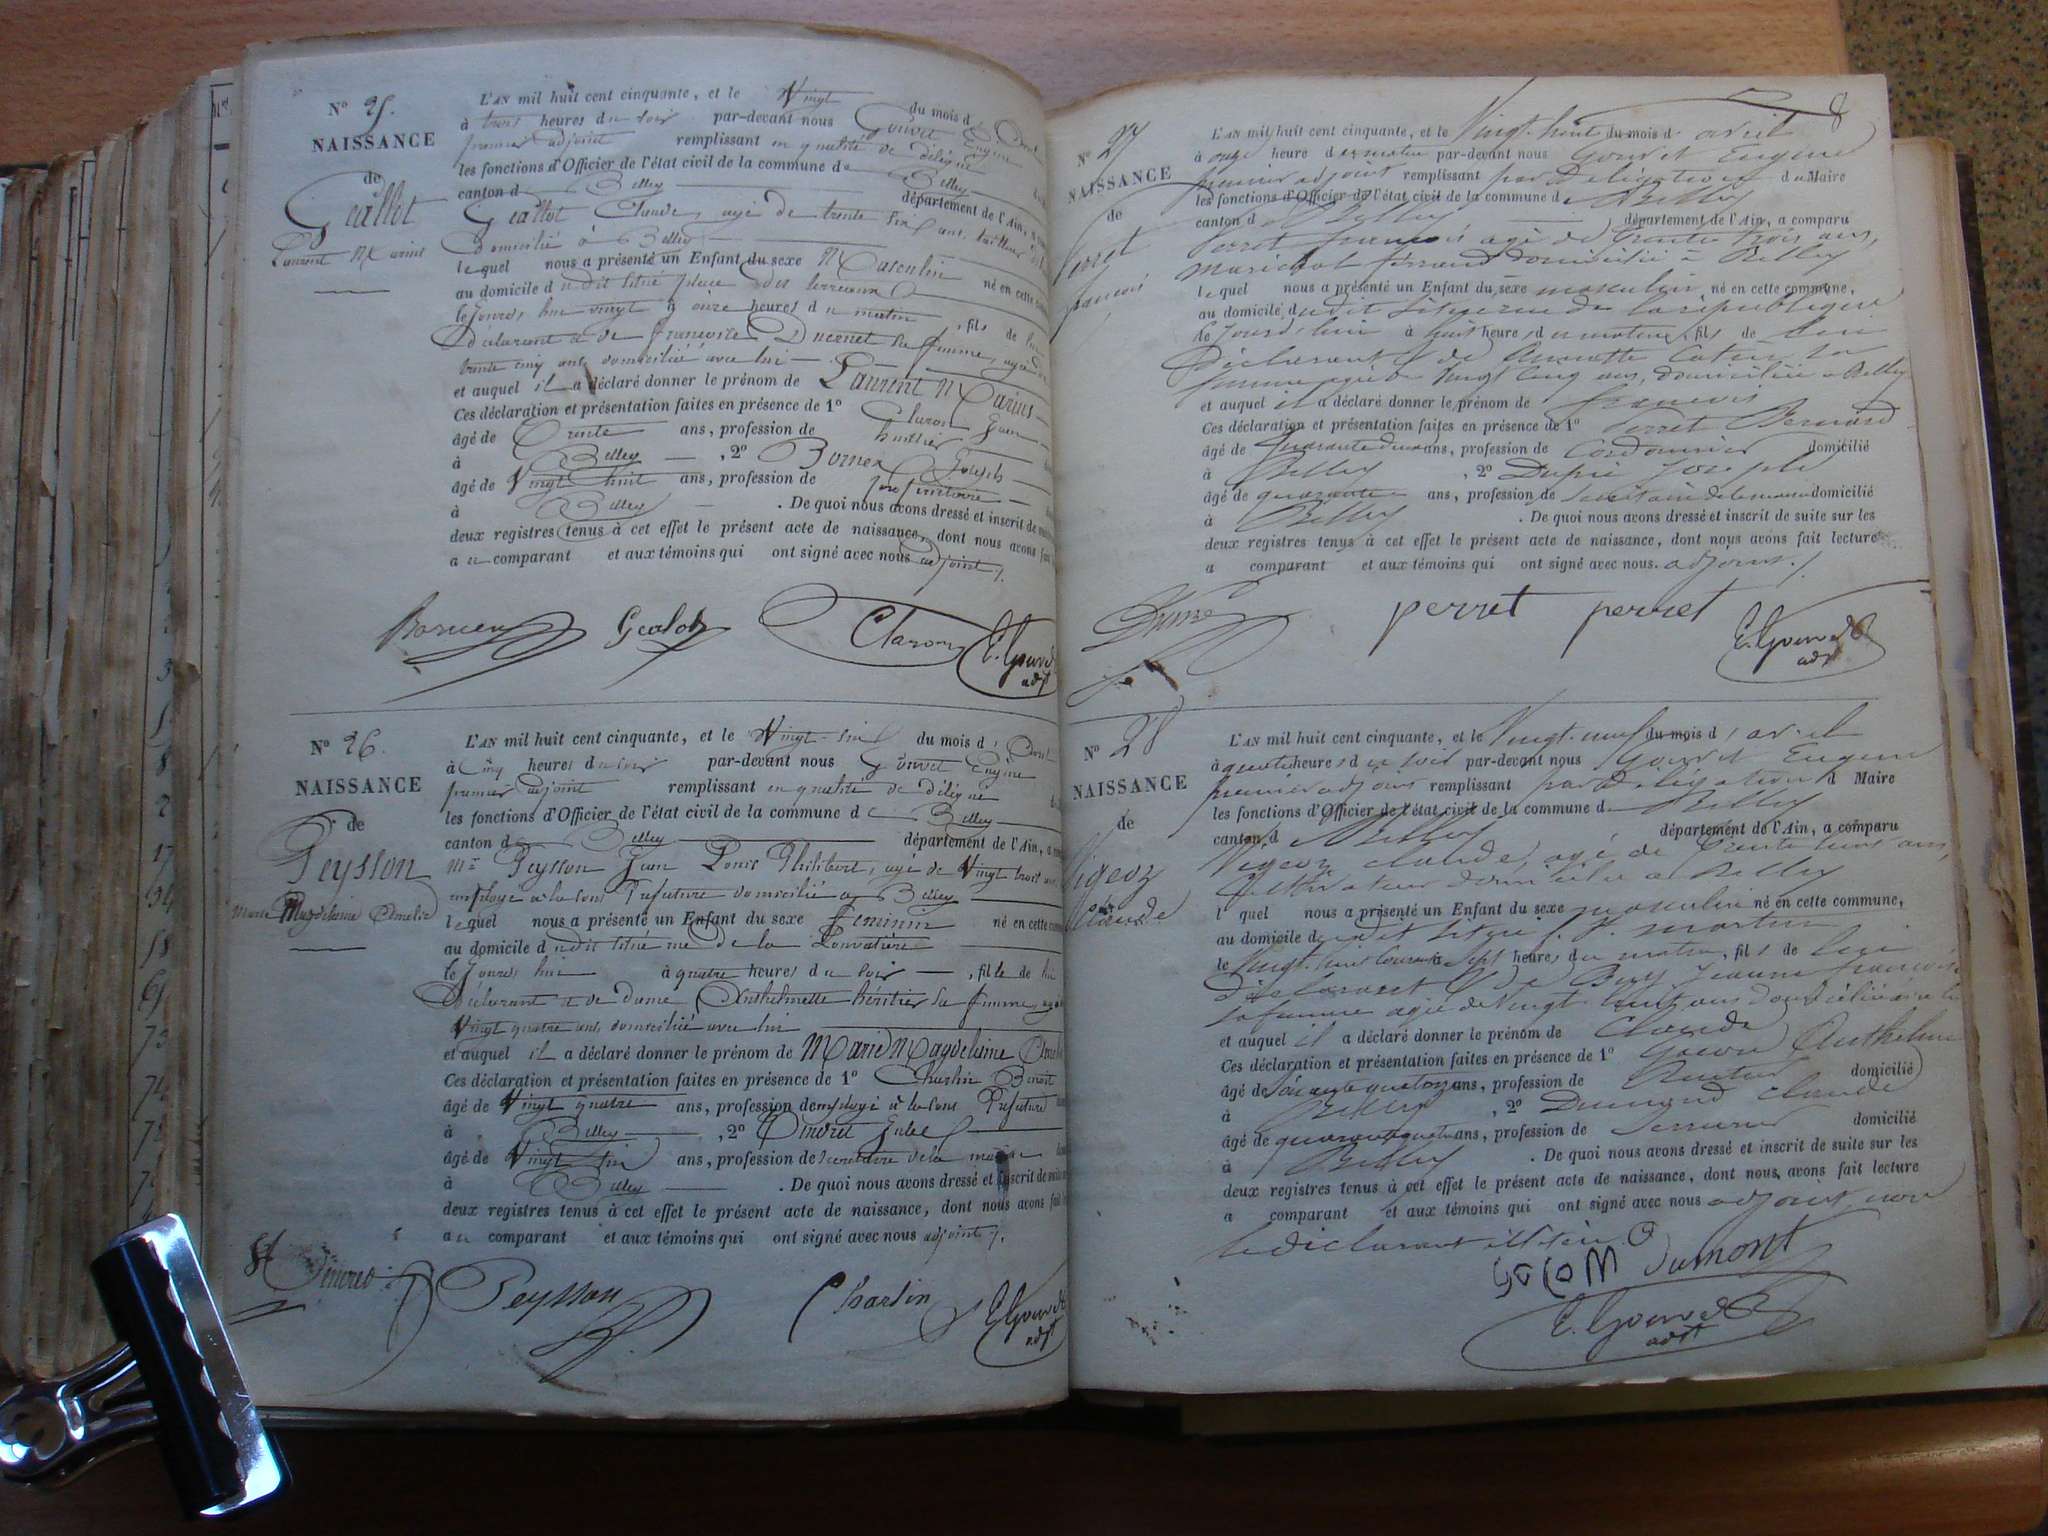 N° 25.
NAISSANCE
de
Laurent Marius
L'AN mil huit cent cinquante, et le Vingt du mois d
à trois heures du soir par-devant nous Gouvet Eugène
premier adjoint remplissant en qualité de délégué
les fonctions d'Officier de l'état civil de la commune de Belley
canton de Belley département de l'Ain, a
Claude, agé de trente six ans, tailleur
domicilié à Belley
lequel nous a présenté un Enfant du sexe Masculin né en cette
au domicile dudit situé place des terreaux
le jourd'hui vingt à onze heures du matin, fils de lui
Déclarant et de Françoise Ducrest sa femme, agée de
trente cinq ans domiciliée avec lui
et auquel il a déclaré donner le prénom de Laurent Marius
Ces déclaration et présentation faites en présence de 1° Claron Jean
âgé de Trente ans, profession de huissier
à Belley, 2° Joseph
âgé de Vingt huit ans, profession de
à Belley. De quoi nous avons dressé et inscrit de
deux registres tenus à cet effet le présent acte de naissance, dont nous avons fait
au comparant et aux témoins qui ont signé avec nous adjoint
Claron E. Gouvet
adjt
N° 26.
NAISSANCE
de
Peysson
Marie Magdeleine Amelie
L'AN mil huit cent cinquante, et le Vingt-six du mois d'Avril
à Cinq heures du soir par-devant nous Gouvet Eugène
premier adjoint remplissant en qualité de délégué
les fonctions d'Officier de l'état civil de la commune de Belley
canton de Belley département de l'Ain, a
Mr Peysson Jean Louis Philibert, agé de Vingt trois ans
employé à la sous Préfecture domicilié à Belley
lequel nous a présenté un Enfant du sexe Feminin né en cette
au domicile dudit situé rue de la
le jourd'hui à quatre heures du soir, fille de lui
Déclarant et de dame Anthelmette héritier sa femme, agée
Vingt quatre ans domiciliée avec lui
et auquel il a déclaré donner le prénom de Marie Magdeleine Amelie
Ces déclaration et présentation faites en présence de 1° Charlin Benoit
âgé de Vingt quatre ans, profession d'employé à la sous Préfecture
à Belley, 2° Jules
âgé de Vingt six ans, profession de secrétaire de la mairie
à Belley. De quoi nous avons dressé et inscrit de suite
deux registres tenus à cet effet le présent acte de naissance, dont nous avons fait
au comparant et aux témoins qui ont signé avec nous adjoint
Peysson Charlin E. Gouvet
adjt
8
N° 27
NAISSANCE
de
Perret
françois
L'AN mil huit cent cinquante, et le Vingt-huit du mois d'avril
à onze heure du matin par-devant nous Gouvet Eugène
premier adjoint remplissant par Délégation du Maire
les fonctions d'Officier de l'état civil de la commune de Belley
canton de Belley département de l'Ain, a comparu
Perret françois agé de trente trois ans,
maréchal ferrand domicilié à Belley
lequel nous a présenté un Enfant du sexe masculin né en cette commune,
au domicile dudit situé rue de la république
le jourd'hui à huit heures du matin, fils de lui
Déclarant et de sa
femme agée de vingt cinq ans, domiciliée à Belley
et auquel il a déclaré donner le prénom de françois
Ces déclaration et présentation faites en présence de 1° Perret Bernard
âgé de quarante deux ans, profession de Cordonnier domicilié
à Belley, 2° Joseph
âgé de quarante ans, profession de secrétaire de la mairie domicilié
à Belley. De quoi nous avons dressé et inscrit de suite sur les
deux registres tenus à cet effet le présent acte de naissance, dont nous avons fait lecture
a comparant et aux témoins qui ont signé avec nous. adjoint
perret perret E. Gouvet
adjt
N° 28
NAISSANCE
de
Vigeoz
Claude
L'AN mil huit cent cinquante, et le Vingt-neuf du mois d'avril
à quatre heures du soir par-devant nous Gouvet Eugène
premier adjoint remplissant par Délégation d Maire
les fonctions d'Officier de l'état civil de la commune de Belley
canton de Belley département de l'Ain, a comparu
Vigeoz Claude, agé de trente ans,
Cultivateur domicilié à Belley
lequel nous a présenté un Enfant du sexe masculin né en cette commune,
au domicile dudit situé martin
le Vingt huit courant à sept heures du matin, fils de lui
Déclarant et de Jeanne françoise
sa femme agée de Vingt huit ans domiciliée avec lui
et auquel il a déclaré donner le prénom de Claude
Ces déclaration et présentation faites en présence de 1° Anthelme
âgé de soixante quatorze ans, profession de domicilié
à Belley, 2° Dumond Claude
âgé de quarante quatre ans, profession de Serrurier domicilié
à Belley. De quoi nous avons dressé et inscrit de suite sur les
deux registres tenus à cet effet le présent acte de naissance, dont nous avons fait lecture
a comparant et aux témoins qui ont signé avec nous adjoint, non
le déclarant
Dumont
E. Gouvet
adjt